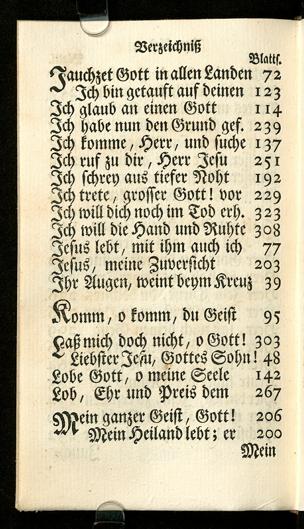 Verzeichniß
Blatſ.
Jauchzet Gott in allen Landen 72
Ich bin getauft auf deinen 123
Ich glaub an einen Gott 114
Ich habe nun den Grund gef. 239
Ich komme, Herr, und ſuche 137
Ich ruf zu dir, Herr Jeſu 251
Ich ſchrey aus tiefer Noht 192
Ich trete, groſſer Gott! vor 229
Ich will dich noch im Tod erh. 323
Ich will die Hand und Ruhte 308
Jeſus lebt, mit ihm auch ich 77
Jeſus, meine Zuverſicht 203
Ihr Augen, weint beym Kreuz 39
Komm, o komm, du Geiſt 95
Laß mich doch nicht, o Gott! 303
Liebſter Jeſu, Gottes Sohn! 48
Lobe Gott, o meine Seele 142
Lob, Ehr und Preis dem 267
Mein ganzer Geiſt, Gott! 206
Mein Heiland lebt; er 200
Mein